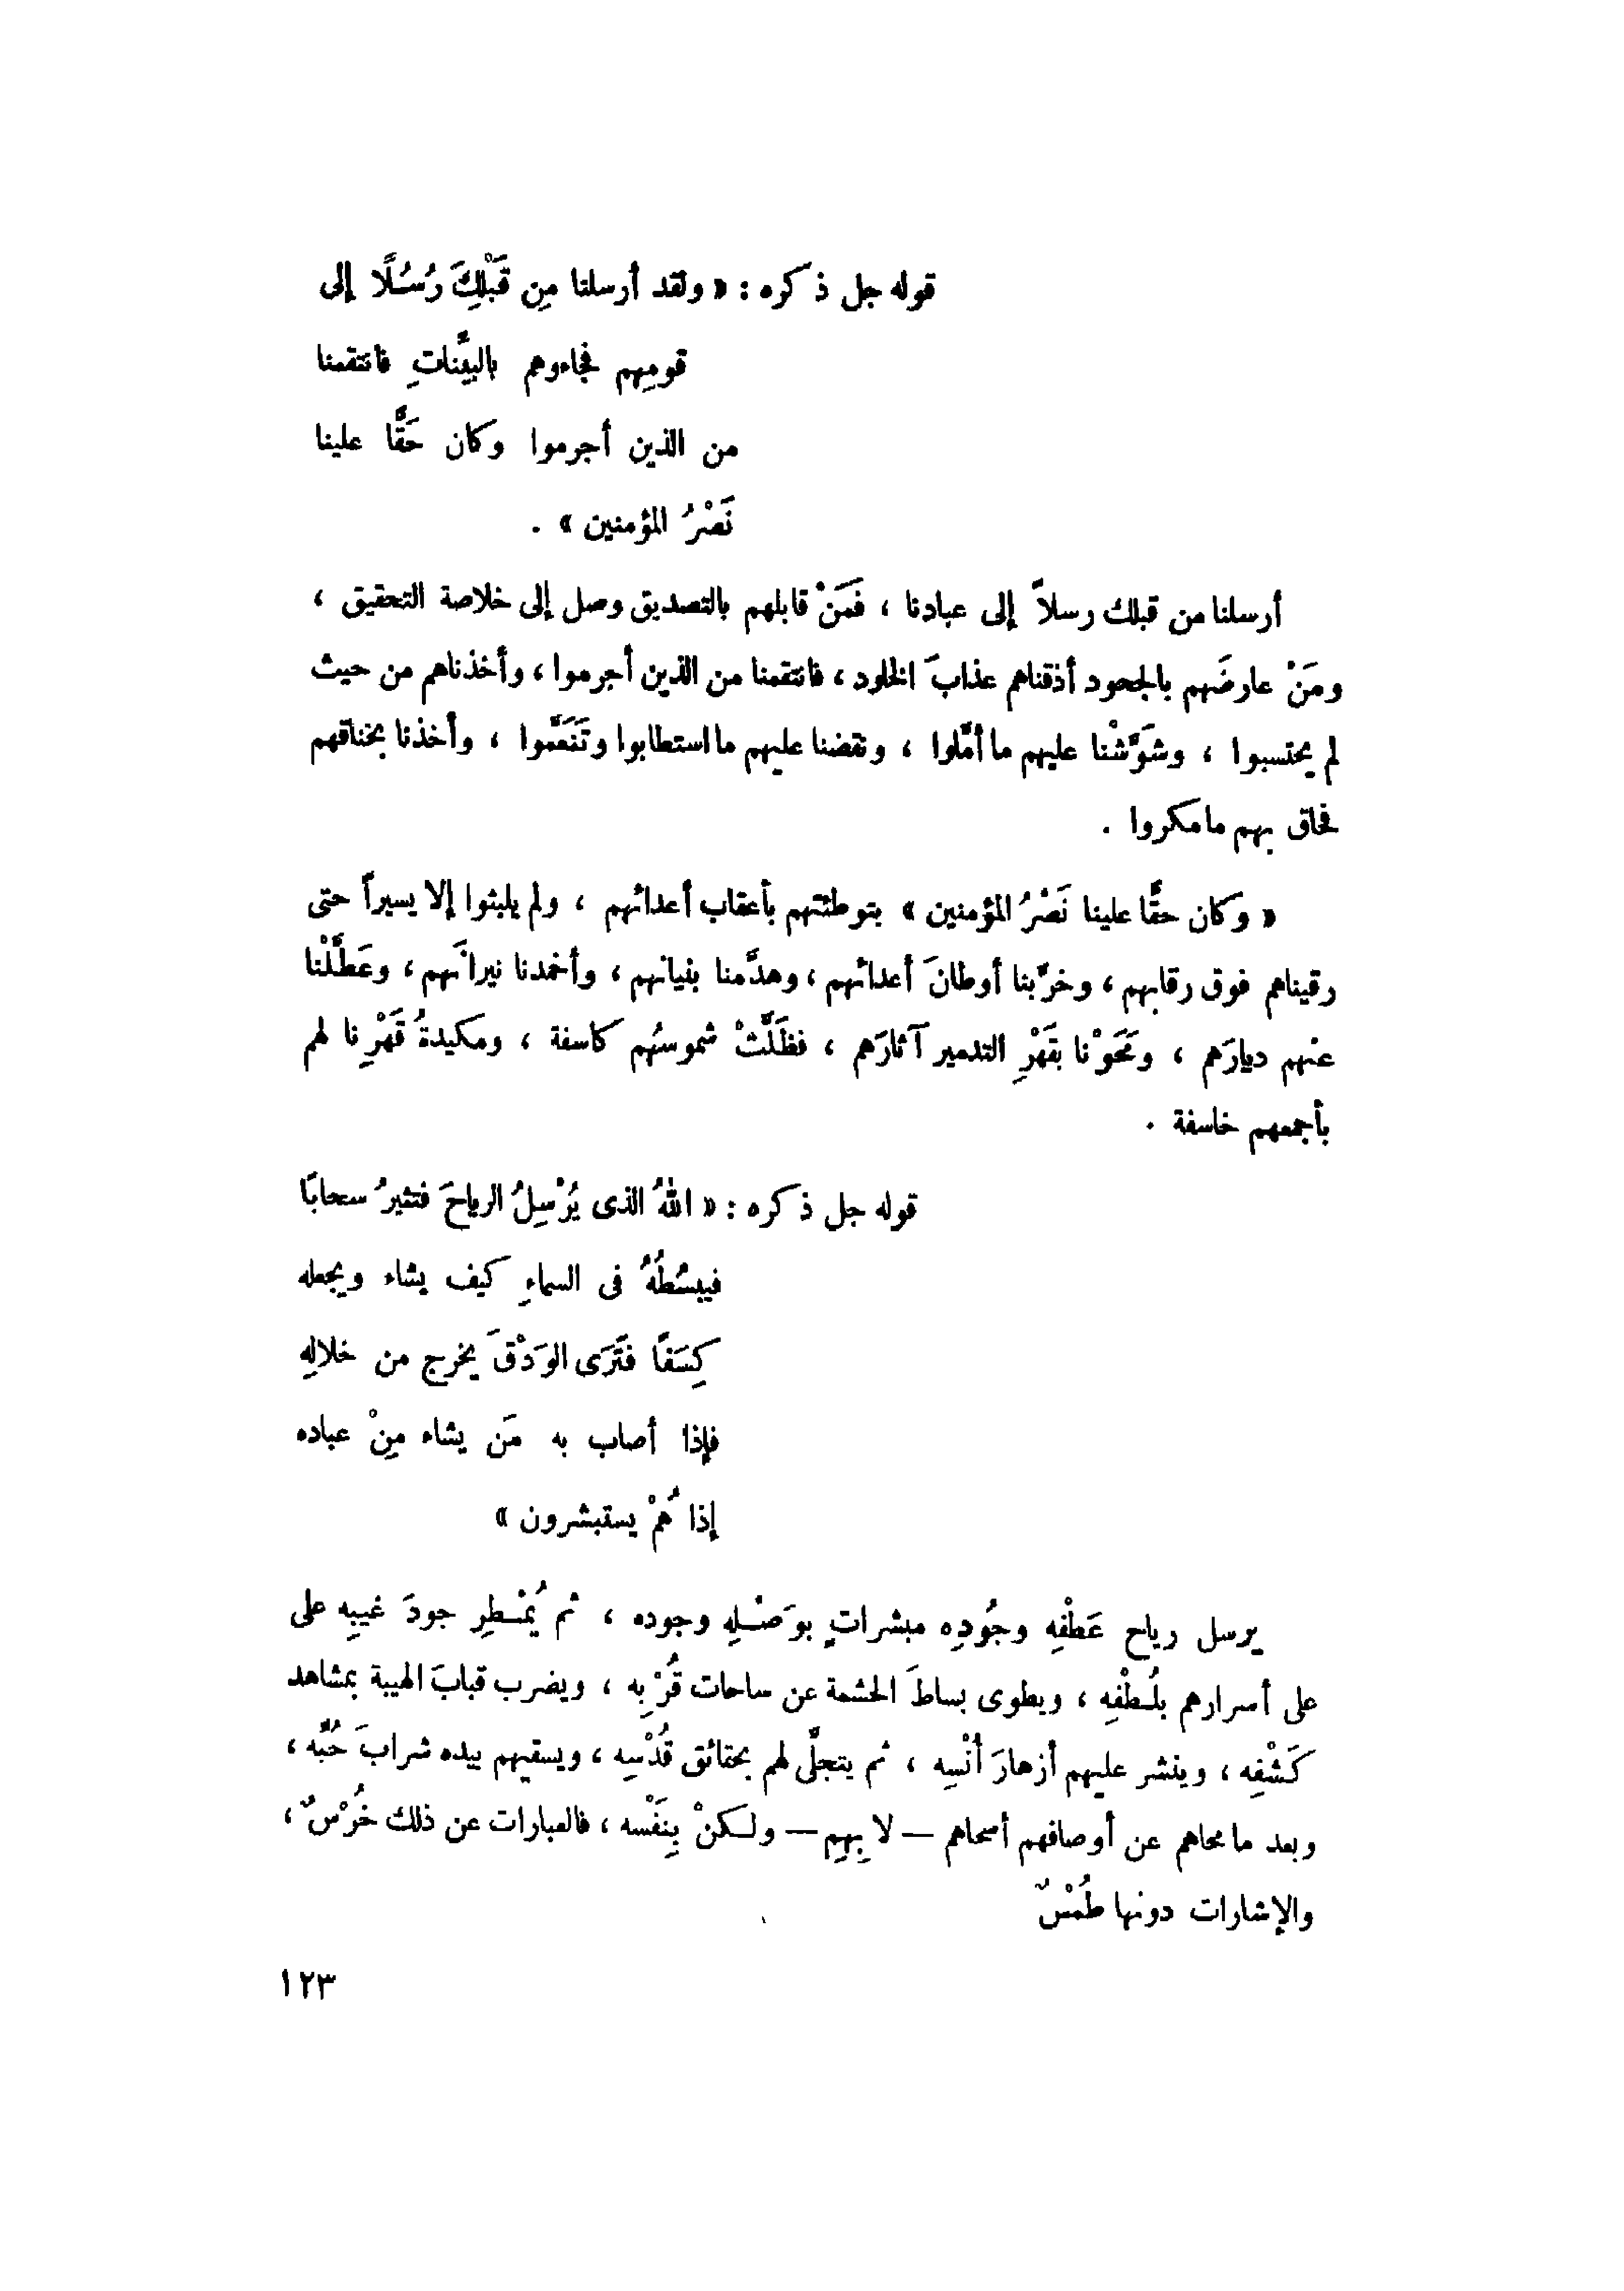 قوله جل ذكره : « ولقد أرسلنا مِن قَبْلِكَ رُسُلًا إلى
قومِهم فجاءوهم بالبيِّناتِ فانتقمنا
من الذين أجرموا وكان حَقًّا علينا
نَصْرُ المؤمنين » .
أرسلنا من قبلك رسلاً إلى عبادنا ، فَمَنْ قابلهم بالتصديق وصل إلى خلاصة التحقيق ،
ومَنْ عارضَهم بالجحود أذقناهم عذابَ الخلود ، فانتقمنا من الذين أجرموا ، وأخذناهم من حيث
لم يحتسبوا ، وشَوَّشْنا عليهم ما أمَّلوا ، ونقضنا عليهم ما استطابوا وتَنَعَّموا ، وأخذنا بخناقهم
فحاق بهم ما مكروا .
« وكان حقًّا علينا نَصْرُ المؤمنين » بتوطئتهم بأعقاب أعدائهم ، ولم يلبثوا إلا يسيراً حتى
رقيناهم فوق رقابهم ، وخرَّبنا أوطانَ أعدائهم ، وهدَّمنا بنيانهم ، وأخمدنا نيرانَهم ، وعَطَّلْنا
عنهم ديارَهم ، ومَحَوْنا بقَهْرِ التدمير آثارَهم ، فظَلَّتْ شموسُهم كاسفة ، ومكيدةُ قَهْرِنا لهم
بأجمعهم خاسفة .
قوله جل ذكره : « اللهُ الذى يُرْسِلُ الرياحَ فتثيرُ سحابًا
فيبسُطُهُ فى السماءِ كيف يشاء ويجعله
كِسَفًا فتَرَى الوَدْقَ يخرج من خلالِهِ
فإذا أصاب به مَن يشاء مِنْ عباده
إذا هُمْ يستبشرون »
يرسل رياح عَطْفِه وجُودِه مبشرات بوَصْلِه وجوده ، ثم يُمْطِر جودَ غيبِه على
على أسرارهم بلُطْفِه ، ويطوى بساطَ الحشمة عن ساحات قُرْبِه ، ويضرب قبابَ الهيبة بمشاهد
كَشْفِه ، وينشر عليهم أزهارَ أُنْسِه ، ثم يتجلَّى لهم بحقائق قُدْسِه ، ويسقيهم بيده شرابَ حُبِّه ،
وبعد ما محاهم عن أوصافهم أصحاهم — لا بِهِم — ولكنْ بِنَفْسه ، فالعبارات عن ذلك خُرْسٌ ،
والإشارات دونها طُمْسٌ
١٢٣